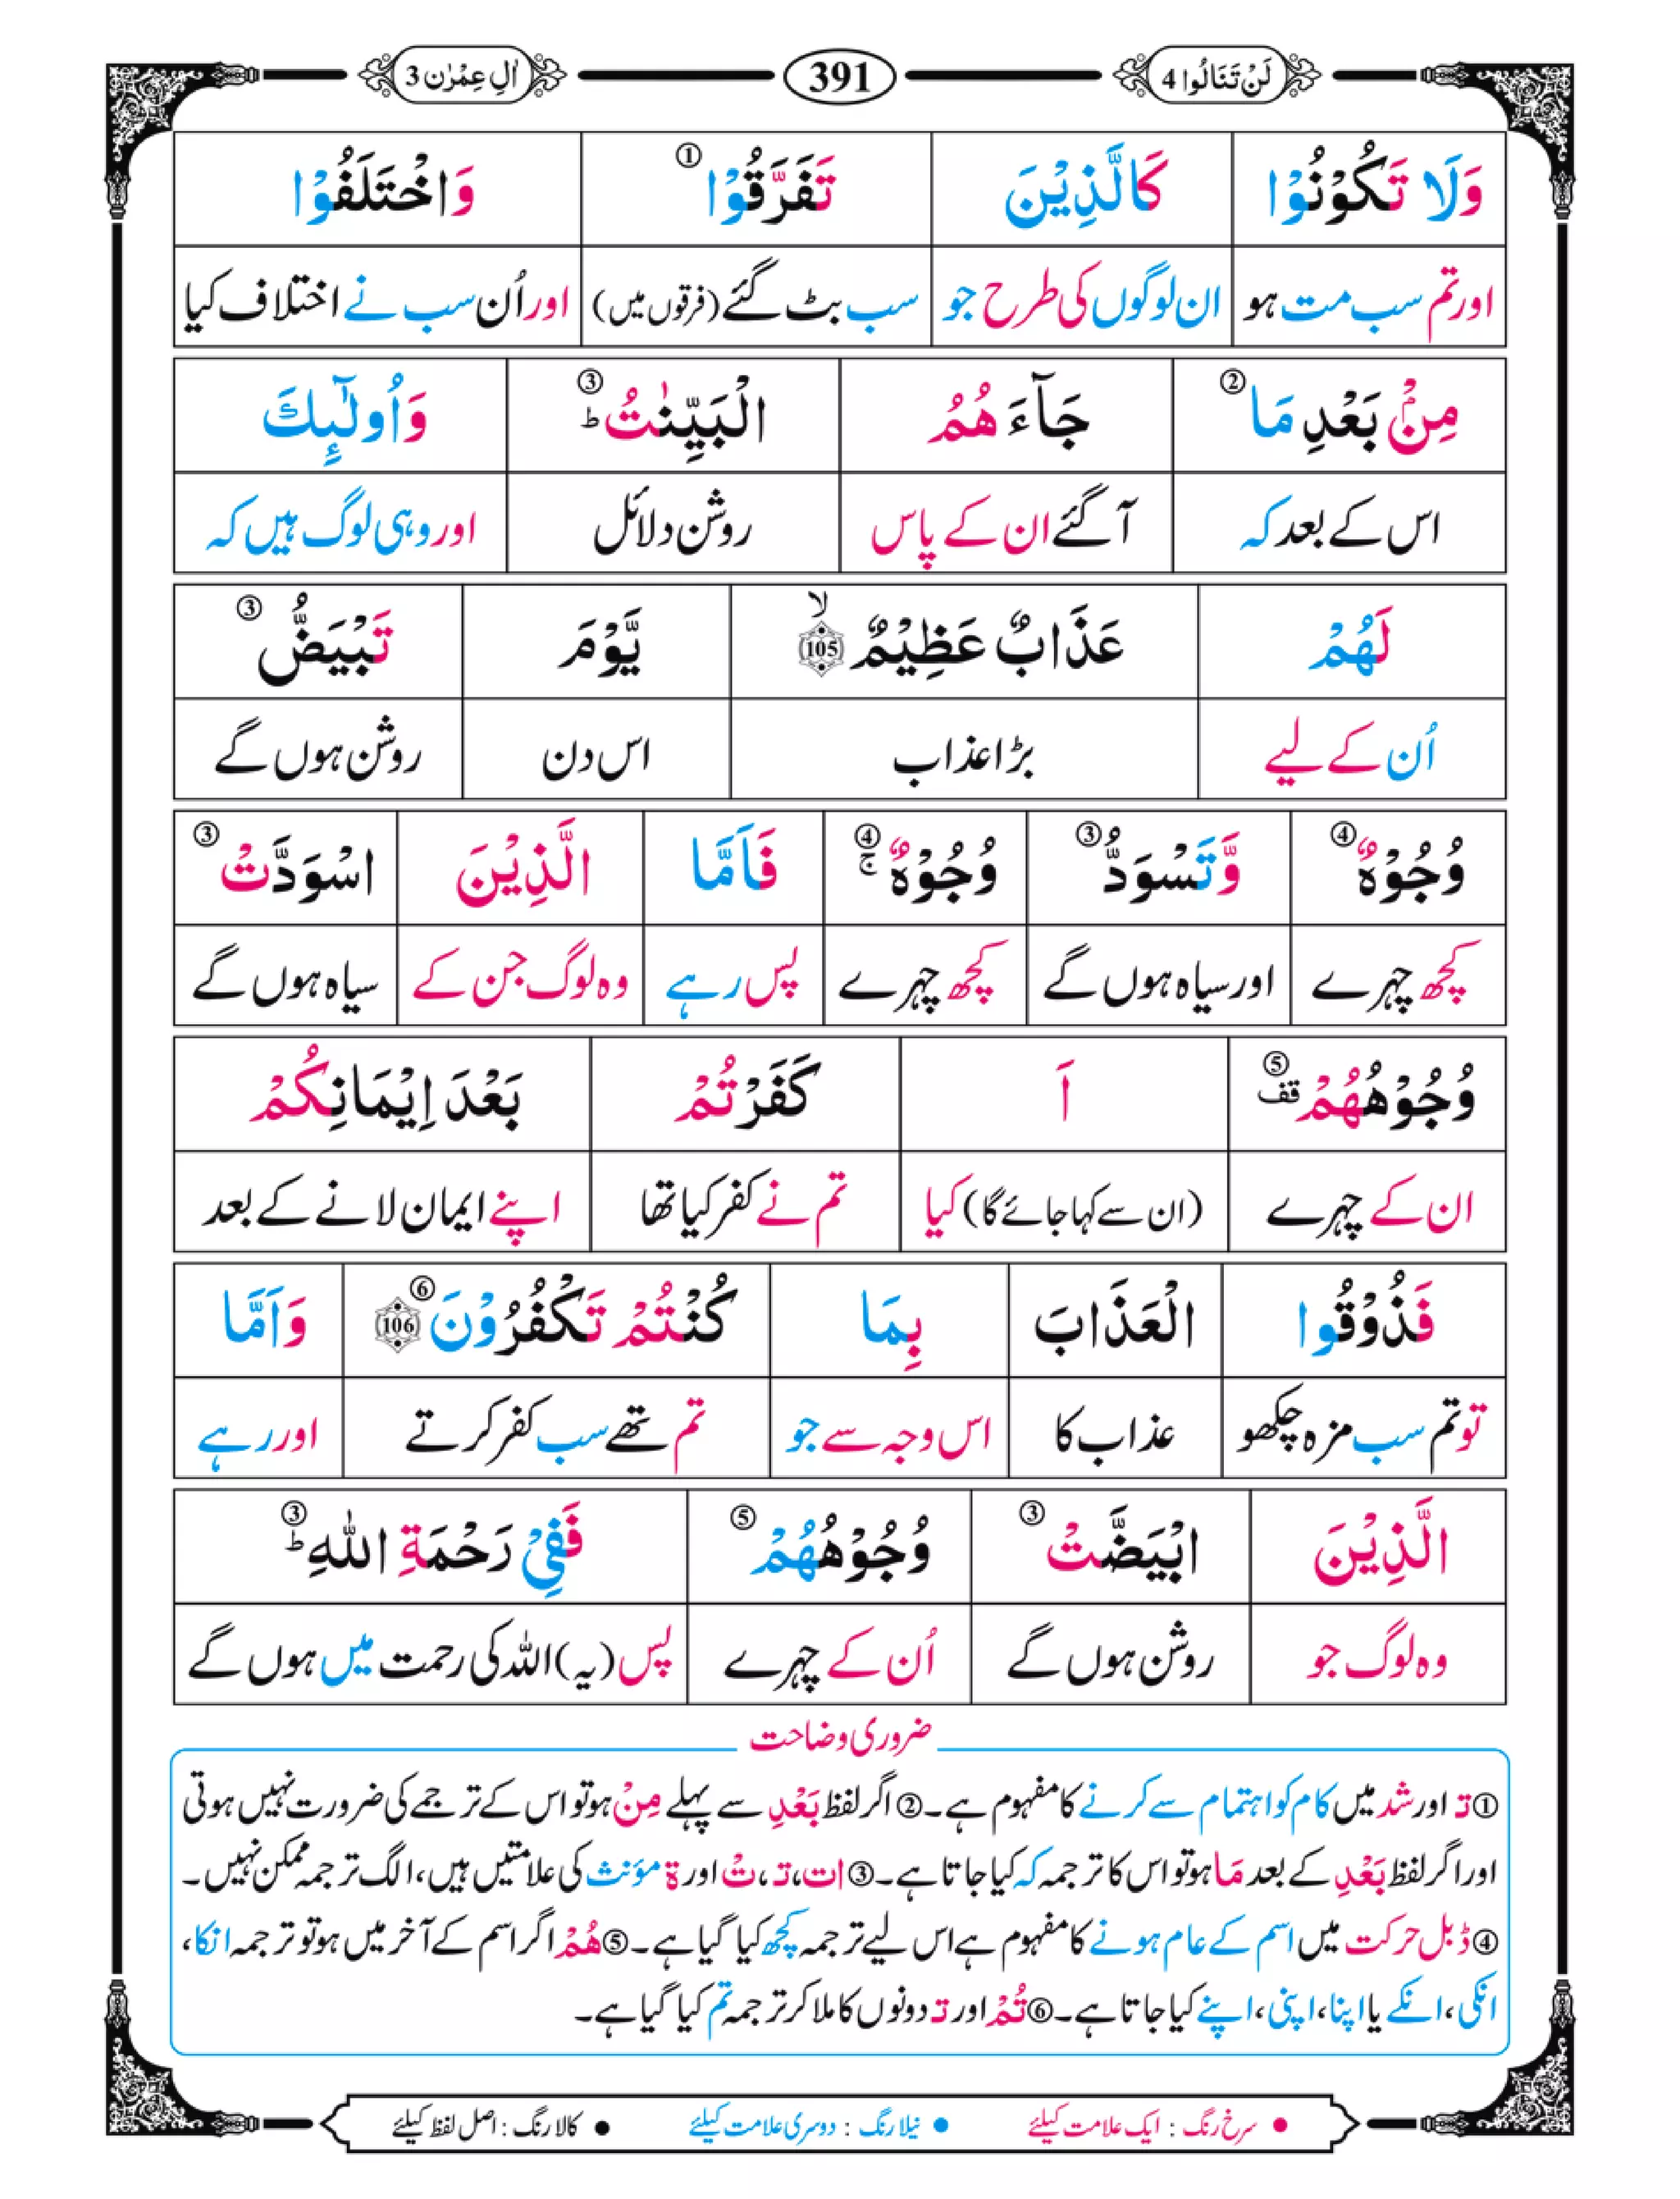 لَنْ تَنَالُوا 4 391 اٰلِ عِمْرٰن 3
وَلَا تَكُوْنُوْا كَالَّذِيْنَ تَفَرَّقُوْا ① وَاخْتَلَفُوْا
اور تم سب مت ہو ان لوگوں کی طرح جو سب بٹ گئے (فرقوں میں) اور اُن سب نے اختلاف کیا
مِنْۢ بَعْدِ مَا ② جَآءَهُمُ الْبَيِّنٰتُ ③ ؕ وَاُولٰٓئِكَ
اس کے بعد کہ آ گئے ان کے پاس روشن دلائل اور وہی لوگ ہیں کہ
لَهُمْ عَذَابٌ عَظِيْمٌ ۙ 105 يَّوْمَ تَبْيَضُّ ③
اُن کے لیے بڑا عذاب اس دن روشن ہوں گے
وُجُوْهٌ ④ وَّتَسْوَدُّ ③ وُجُوْهٌ ④ ۚ فَاَمَّا الَّذِيْنَ اسْوَدَّتْ ③
کچھ چہرے اور سیاہ ہوں گے کچھ چہرے پس رہے وہ لوگ جن کے سیاہ ہوں گے
وُجُوْهُهُمْ ⑤ قف اَ كَفَرْتُمْ بَعْدَ اِيْمَانِكُمْ
ان کے چہرے (ان سے کہا جائے گا) کیا تم نے کفر کیا تھا اپنے ایمان لانے کے بعد
فَذُوْقُوا الْعَذَابَ بِمَا كُنْتُمْ تَكْفُرُوْنَ ⑥ 106 وَاَمَّا
تو تم سب مزہ چکھو عذاب کا اس وجہ سے جو تم تھے سب کفر کرتے اور رہے
الَّذِيْنَ ابْيَضَّتْ ③ وُجُوْهُهُمْ ⑤ فَفِيْ رَحْمَةِ اللّٰهِ ③ ؕ
وہ لوگ جو روشن ہوں گے اُن کے چہرے پس (یہ) اللہ کی رحمت میں ہوں گے
ضروری وضاحت
① تـ اور شد میں کام کو اہتمام سے کرنے کا مفہوم ہے۔ ② اگر لفظ بَعْدِ سے پہلے مِنْ ہو تو اس کے ترجمے کی ضرورت نہیں ہوتی
اور اگر لفظ بَعْدِ کے بعد مَا ہو تو اس کا ترجمہ کہ کیا جاتا ہے۔ ③ ات، تـ، تْ اور ة مؤنث کی علامتیں ہیں، الگ ترجمہ ممکن نہیں۔
④ ڈبل حرکت میں اسم کے عام ہونے کا مفہوم ہے اس لیے ترجمہ کچھ کیا گیا ہے۔ ⑤ هُمْ اگر اسم کے آخر میں ہو تو ترجمہ انکا،
انکی، انکے یا اپنا، اپنی، اپنے کیا جاتا ہے۔ ⑥ تُمْ اور تـ دونوں کا ملا کر ترجمہ تم کیا گیا ہے۔
● سرخ رنگ : ایک علامت کیلئے ● نیلا رنگ : دوسری علامت کیلئے ● کالا رنگ : اصل لفظ کیلئے